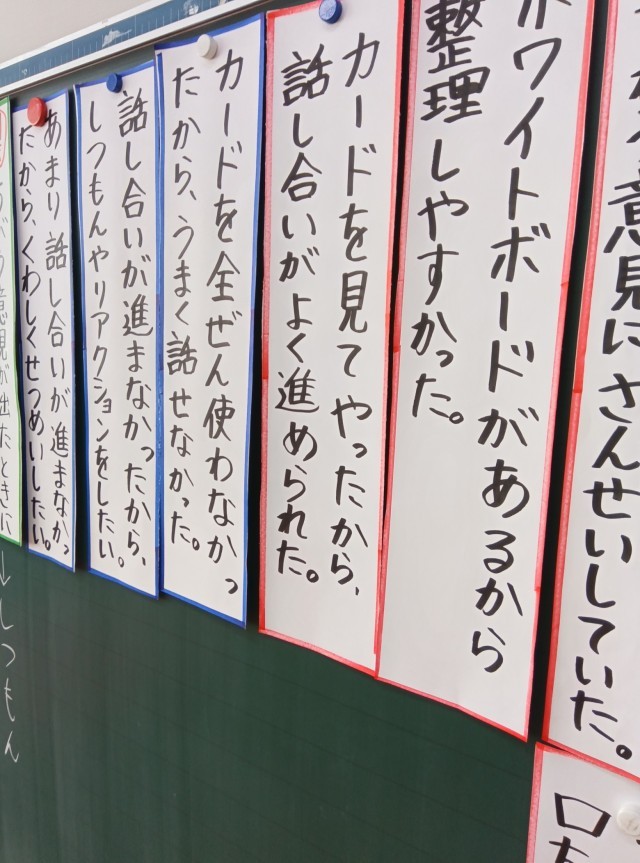 意見にさんせいしていた。
ホワイトボードがあるから
整理しやすかった。
カードを見てやったから、
話し合いがよく進められた。
カードを全ぜん使わなかっ
たから、うまく話せなかった。
話し合いが進まなかったから、
しつもんやリアクションをしたい。
あまり話し合いが進まなかっ
たから、くわしくせつめいしたい。
意見が出たときに
↓しつもん